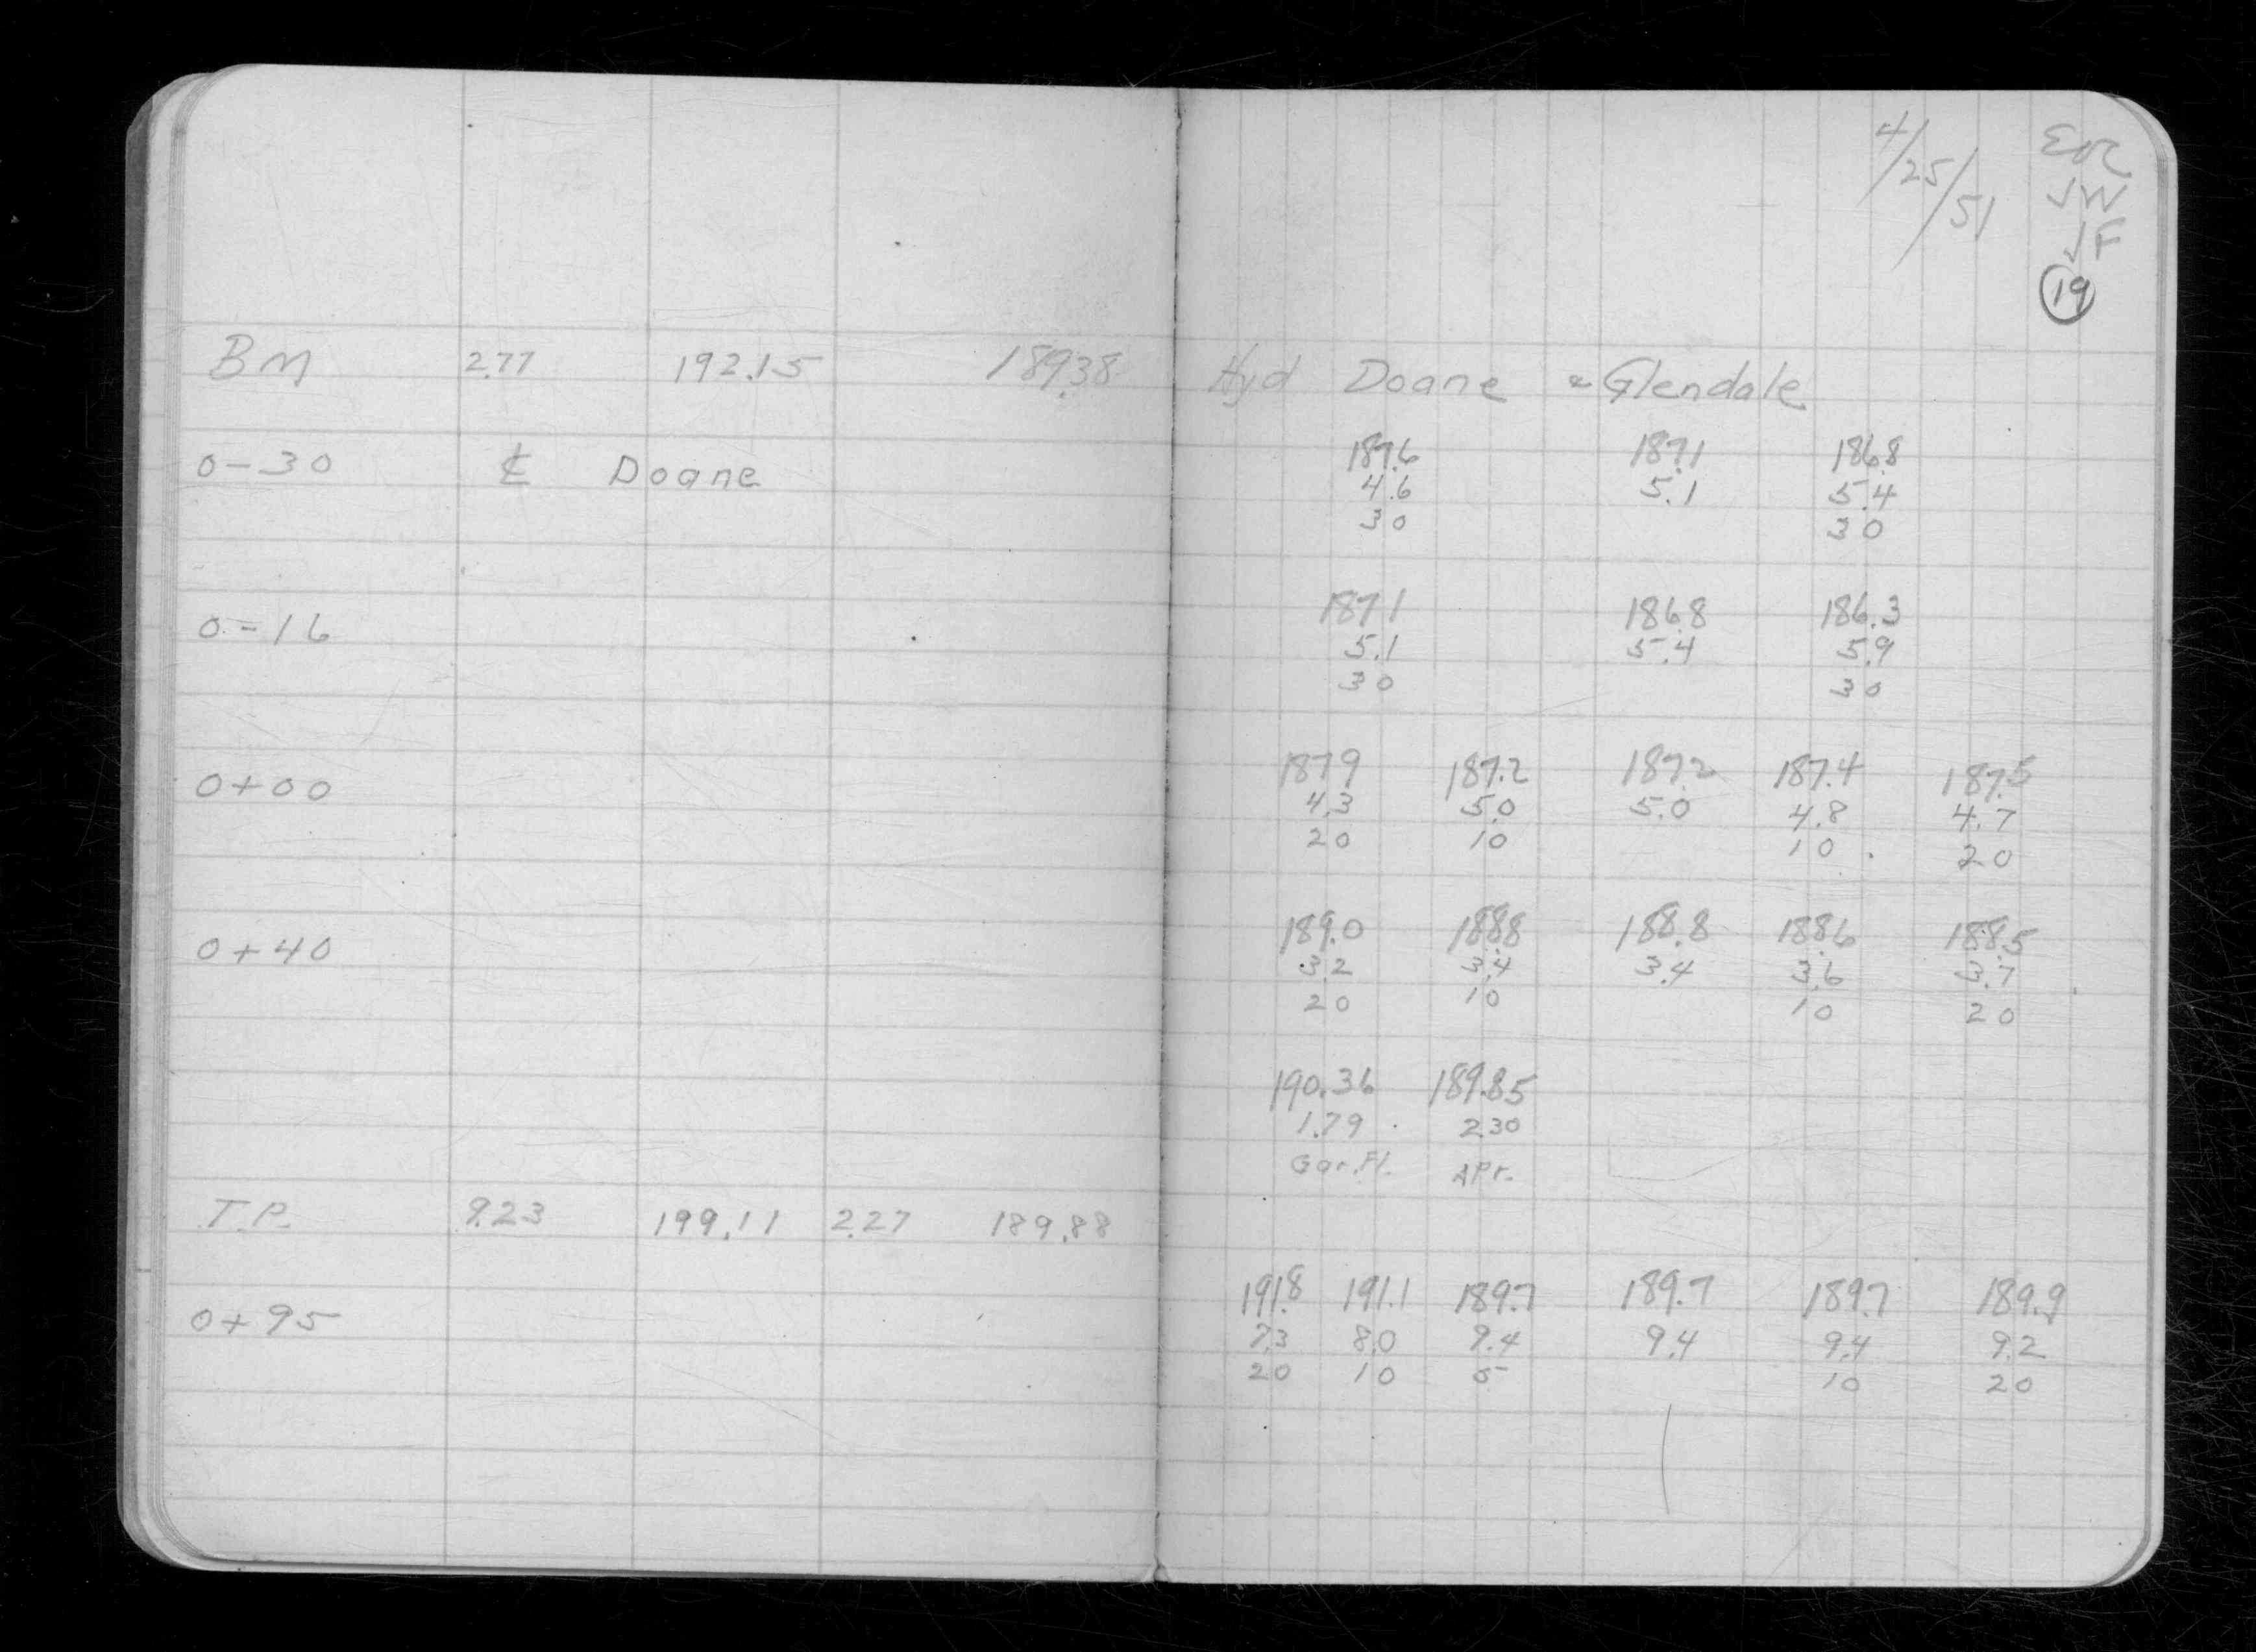 4/25/51
JW
JF
19
BM 2.77 192.15 189.38 Hyd Doane & Glendale
0-30 ℄ Doane 187.6 187.1 186.8
4.6 5.1 5.4
30 30
0-16 187.1 186.8 186.3
5.1 5.4 5.9
30 30
0+00 187.9 187.2 187.2 187.4 187.5
4.3 5.0 5.0 4.8 4.7
20 10 10 20
0+40 189.0 188.8 188.8 188.6 188.5
3.2 3.4 3.4 3.6 3.7
20 10 10 20
190.36 189.85
1.79 2.30
Gar.Fl. APr.
T.P. 9.23 199.11 2.27 189.88
0+95 191.8 191.1 189.7 189.7 189.7 189.9
7.3 8.0 9.4 9.4 9.4 9.2
20 10 5 10 20